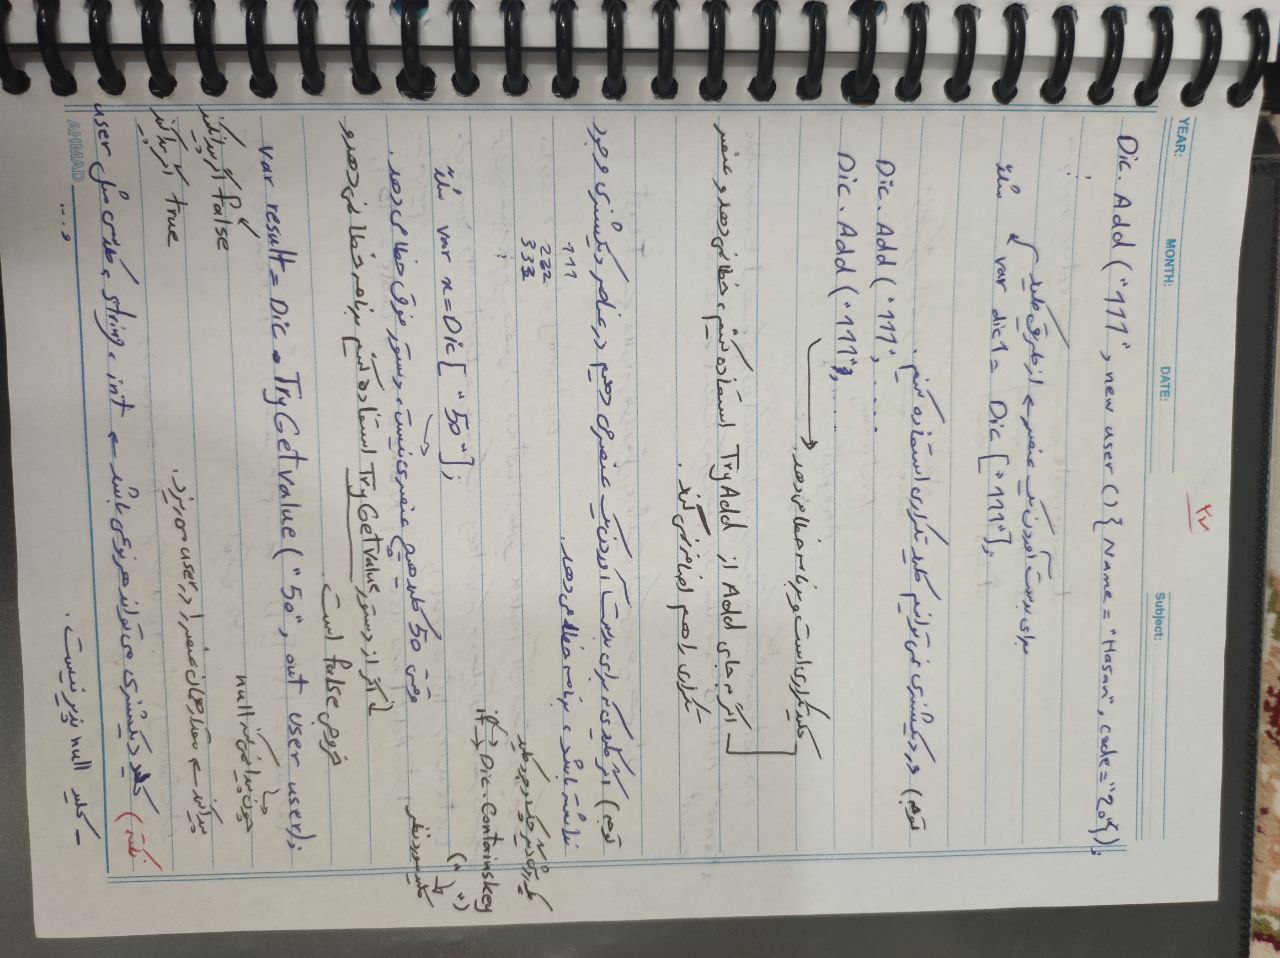 ۲۷
YEAR: MONTH: DATE: Subject:
Dic. Add ("111", new user () { Name = "Hasan", code = "20"});
⋮
برای بدست آوردن یک عنصر ← از طریق کلید
مثلاً var dic1 = Dic ["111"];
توجه) در دیکشنری نمی توانیم کلید تکراری استفاده کنیم.
Dic. Add ("111", ....
Dic. Add ("111", ....
کلید تکراری است و برنامه خطا می دهد.
اگر به جای Add از TryAdd استفاده کنیم، خطا نمی دهد و عنصر
تکراری را هم اضافه نمی کند.
توجه) اگر کلیدی که برای بدست آوردن یک عنصر می دهیم در عناصر دیکشنری وجود
نداشته باشد، برنامه خطا می دهد.
111
222
333
⋮
یک روش دیگر چک وجود کلید
if → Dic. Containskey
(" ")
کلید مورد نظر
مثلاً var x = Dic ["50"];
وقتی 50 کلید هیچ عنصری نیست، دستور فوق خطا می دهد.
اگر از دستور TryGetvalue استفاده کنیم برنامه خطا نمی دهد و
خروجی false است.
var result = Dic . TryGetvalue ("50", out user user);
چون پیدا نمی کند null
false اگر پیدا نکند
پیدا کند ← مقدار همان عنصر را در user می ریزد.
true اگر پیدا کند
نکته) کلید دیکشنری می تواند هر نوعی باشد ← int ، string ، کلاسی مثل user
و ...
- کلید null پذیر نیست.
AHMAD